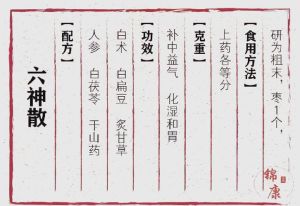 六神散
【配方】
人参 白茯苓 干山药
白术 白扁豆 炙甘草
【功效】
补中益气 化湿和胃
【克重】
上药各等分
【食用方法】
研为粗末，枣1个，
锦康